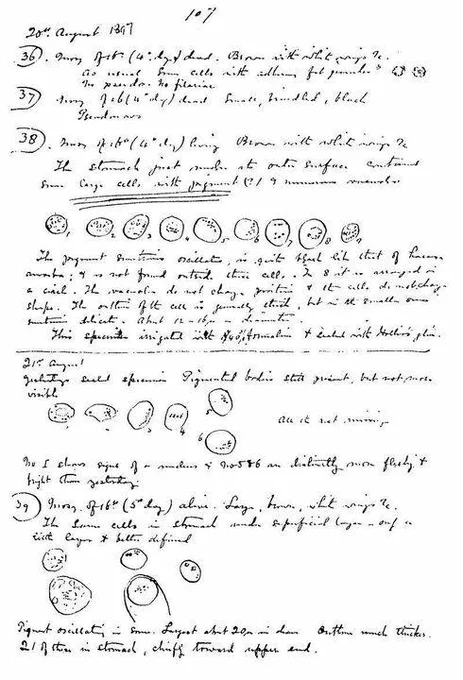 107
20th August 1897
36) Mosq. of 16th (4th day) dead. Brown with white wings &c.
As usual some cells with adherent fat granules
No pseudo. No filariae
37) Mosq of 16 (4th day) dead small, brindled, black
Pseudo nos
38) Mosq. of 16th (4th day) living Brown with white wings &c
The stomach just under its outer surface contained
some large cells with pigment (?) & numerous vacuoles
1 2 3 4 5 6 7 8
The pigment sometimes oscillates, is quite black like that of
amoeba, & is not found outside these cells. In 8 it is arranged in
a circle. The vacuoles do not change position & the cells do not change
shape. The outline of the cell is generally thick, but in the smaller ones
sometimes delicate. About 12-16 µ in diameter.
This specimen irrigated with 40% formalin & sealed with
21st August
Yesterdays sealed specimen Pigmented bodies still present, but not more
visible
1 2 3 4 5 6
All in not moving
No 1 shows signs of a nucleus & Nos 5 & 6 are distinctly more fleshy &
bright than yesterday.
39) Mosq. of 16th (5th day) alive. Large, brown, white wings &c.
The same cells in stomach under superficial layer
larger & better defined
Pigment oscillating in some. Largest about 20µ in diam Outline much thicker.
21 of these in stomach, chiefly toward upper end.